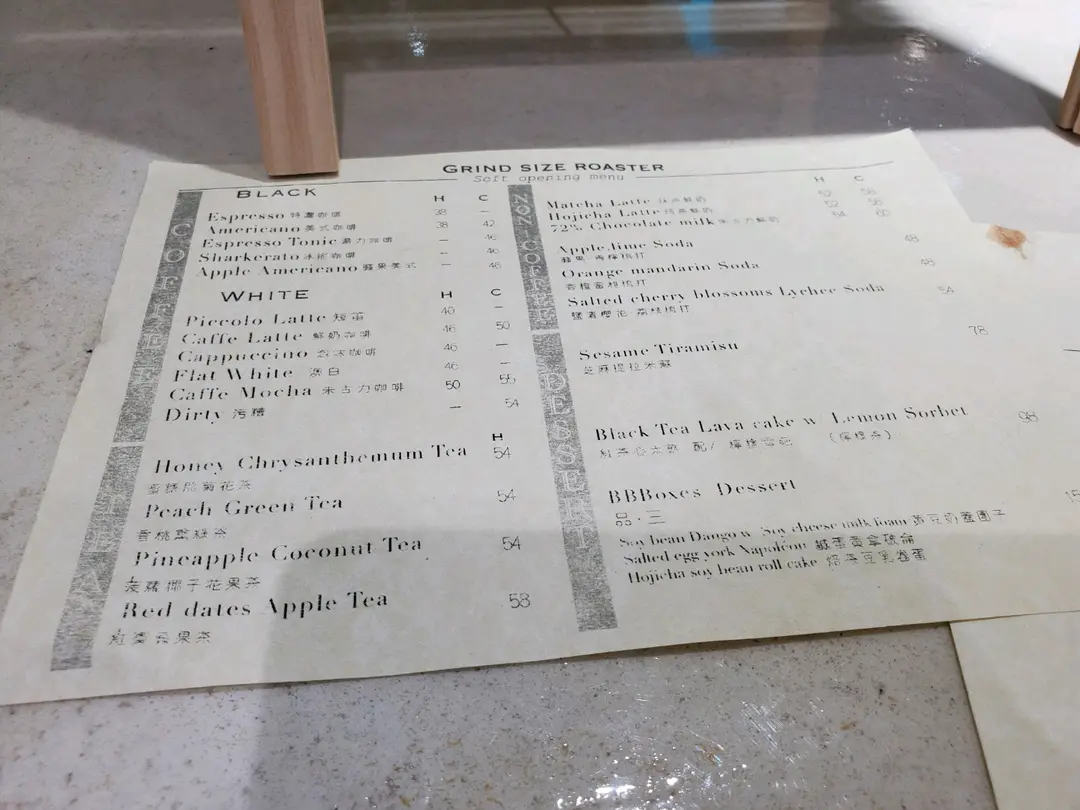 GRIND SIZE ROASTER
Soft opening menu
COFFEE
BLACK H C
Espresso 特濃咖啡 38 —
Americano 美式咖啡 38 42
Espresso Tonic 湯力咖啡 — 46
Sharkerato 冰術咖啡 — 46
Apple Americano 蘋果美式 — 46
WHITE H C
Piccolo Latte 短笛 40 —
Caffe Latte 鮮奶咖啡 46 50
Cappuccino 泡沫咖啡 46 —
Flat White 澳白 46 —
Caffe Mocha 朱古力咖啡 50 55
Dirty 污糟 — 54
H
Honey Chrysanthemum Tea 54
菊花茶
Peach Green Tea 54
香桃綠茶
Pineapple Coconut Tea 54
菠蘿椰子花果茶
Red dates Apple Tea 58
紅棗蘋果茶
NON COFFEE
H C
Matcha Latte 抹茶鮮奶 52 56
Hojicha Latte 焙茶鮮奶 52 56
72% Chocolate milk 朱古力鮮奶 54 60
Apple lime Soda 48
蘋果青檸梳打
Orange mandarin Soda 48
香橙蜜柑梳打
Salted cherry blossoms Lychee Soda 54
鹽漬櫻花 荔枝梳打
DESSERT
Sesame Tiramisu 78
芝麻提拉米蘇
Black Tea Lava cake w/ Lemon Sorbet 98
紅茶心太軟 配/ 檸檬雪葩 (檸檬茶)
BBBoxes Dessert
品·三
Soy bean Dango w Soy cheese milk foam
Salted egg york Napoléon 鹹蛋黃拿破崙
Hojicha soy bean roll cake 焙茶豆乳卷蛋